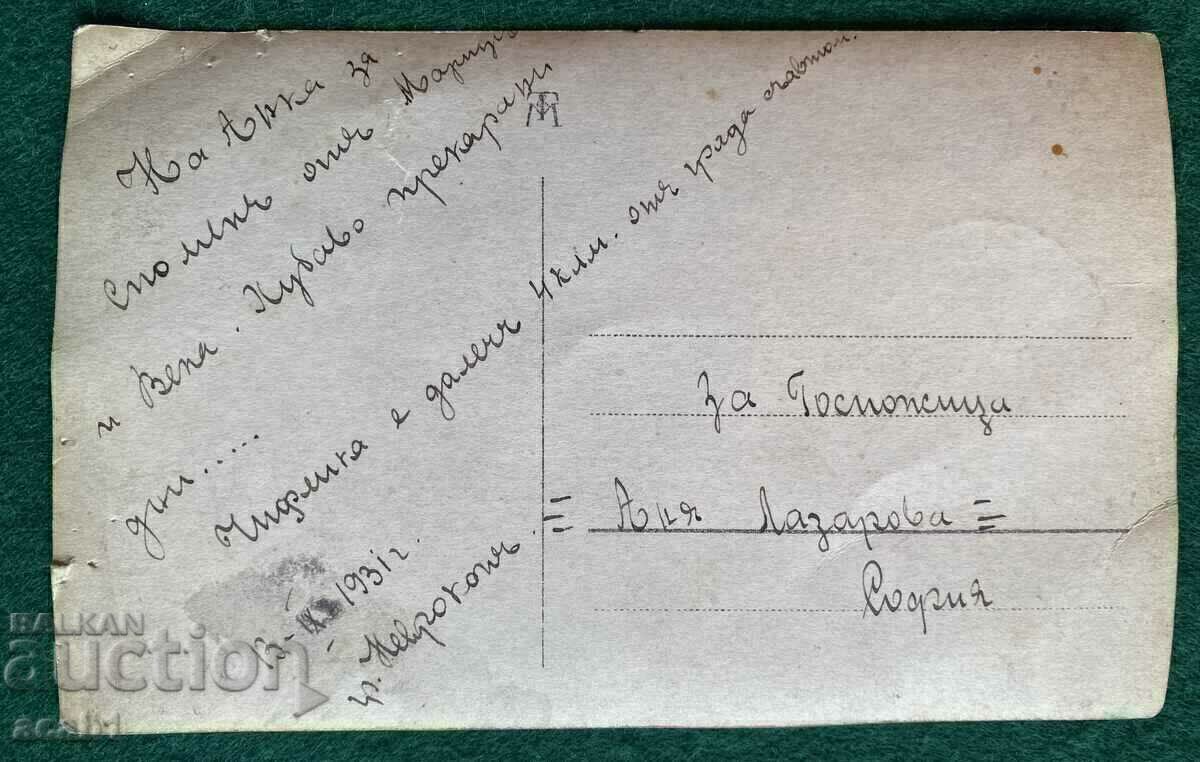 На Анка за
споменъ отъ Марица
и Вена. Хубаво прекарани
дни......
Чифлика е далечъ 4 клм. отъ града
1931 г.
гр. Неврокопъ.
За Госпожица
= Аня Лазарова =
София
BALKAN
auction
acab1